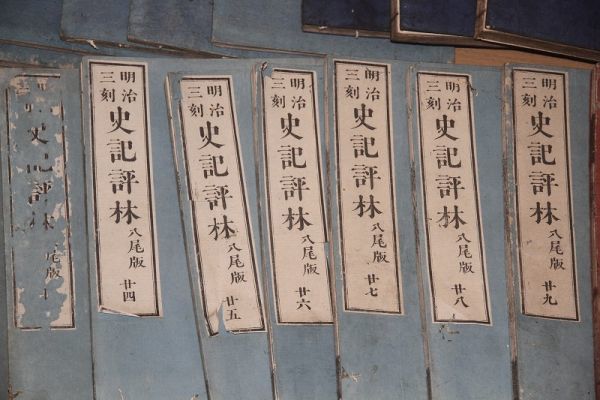 史記評林
尾版
明治
三刻
史記評林
八尾版
廿四
明治
三刻
史記評林
八尾版
廿五
明治
三刻
史記評林
八尾版
廿六
明治
三刻
史記評林
八尾版
廿七
明治
三刻
史記評林
八尾版
廿八
明治
三刻
史記評林
八尾版
廿九